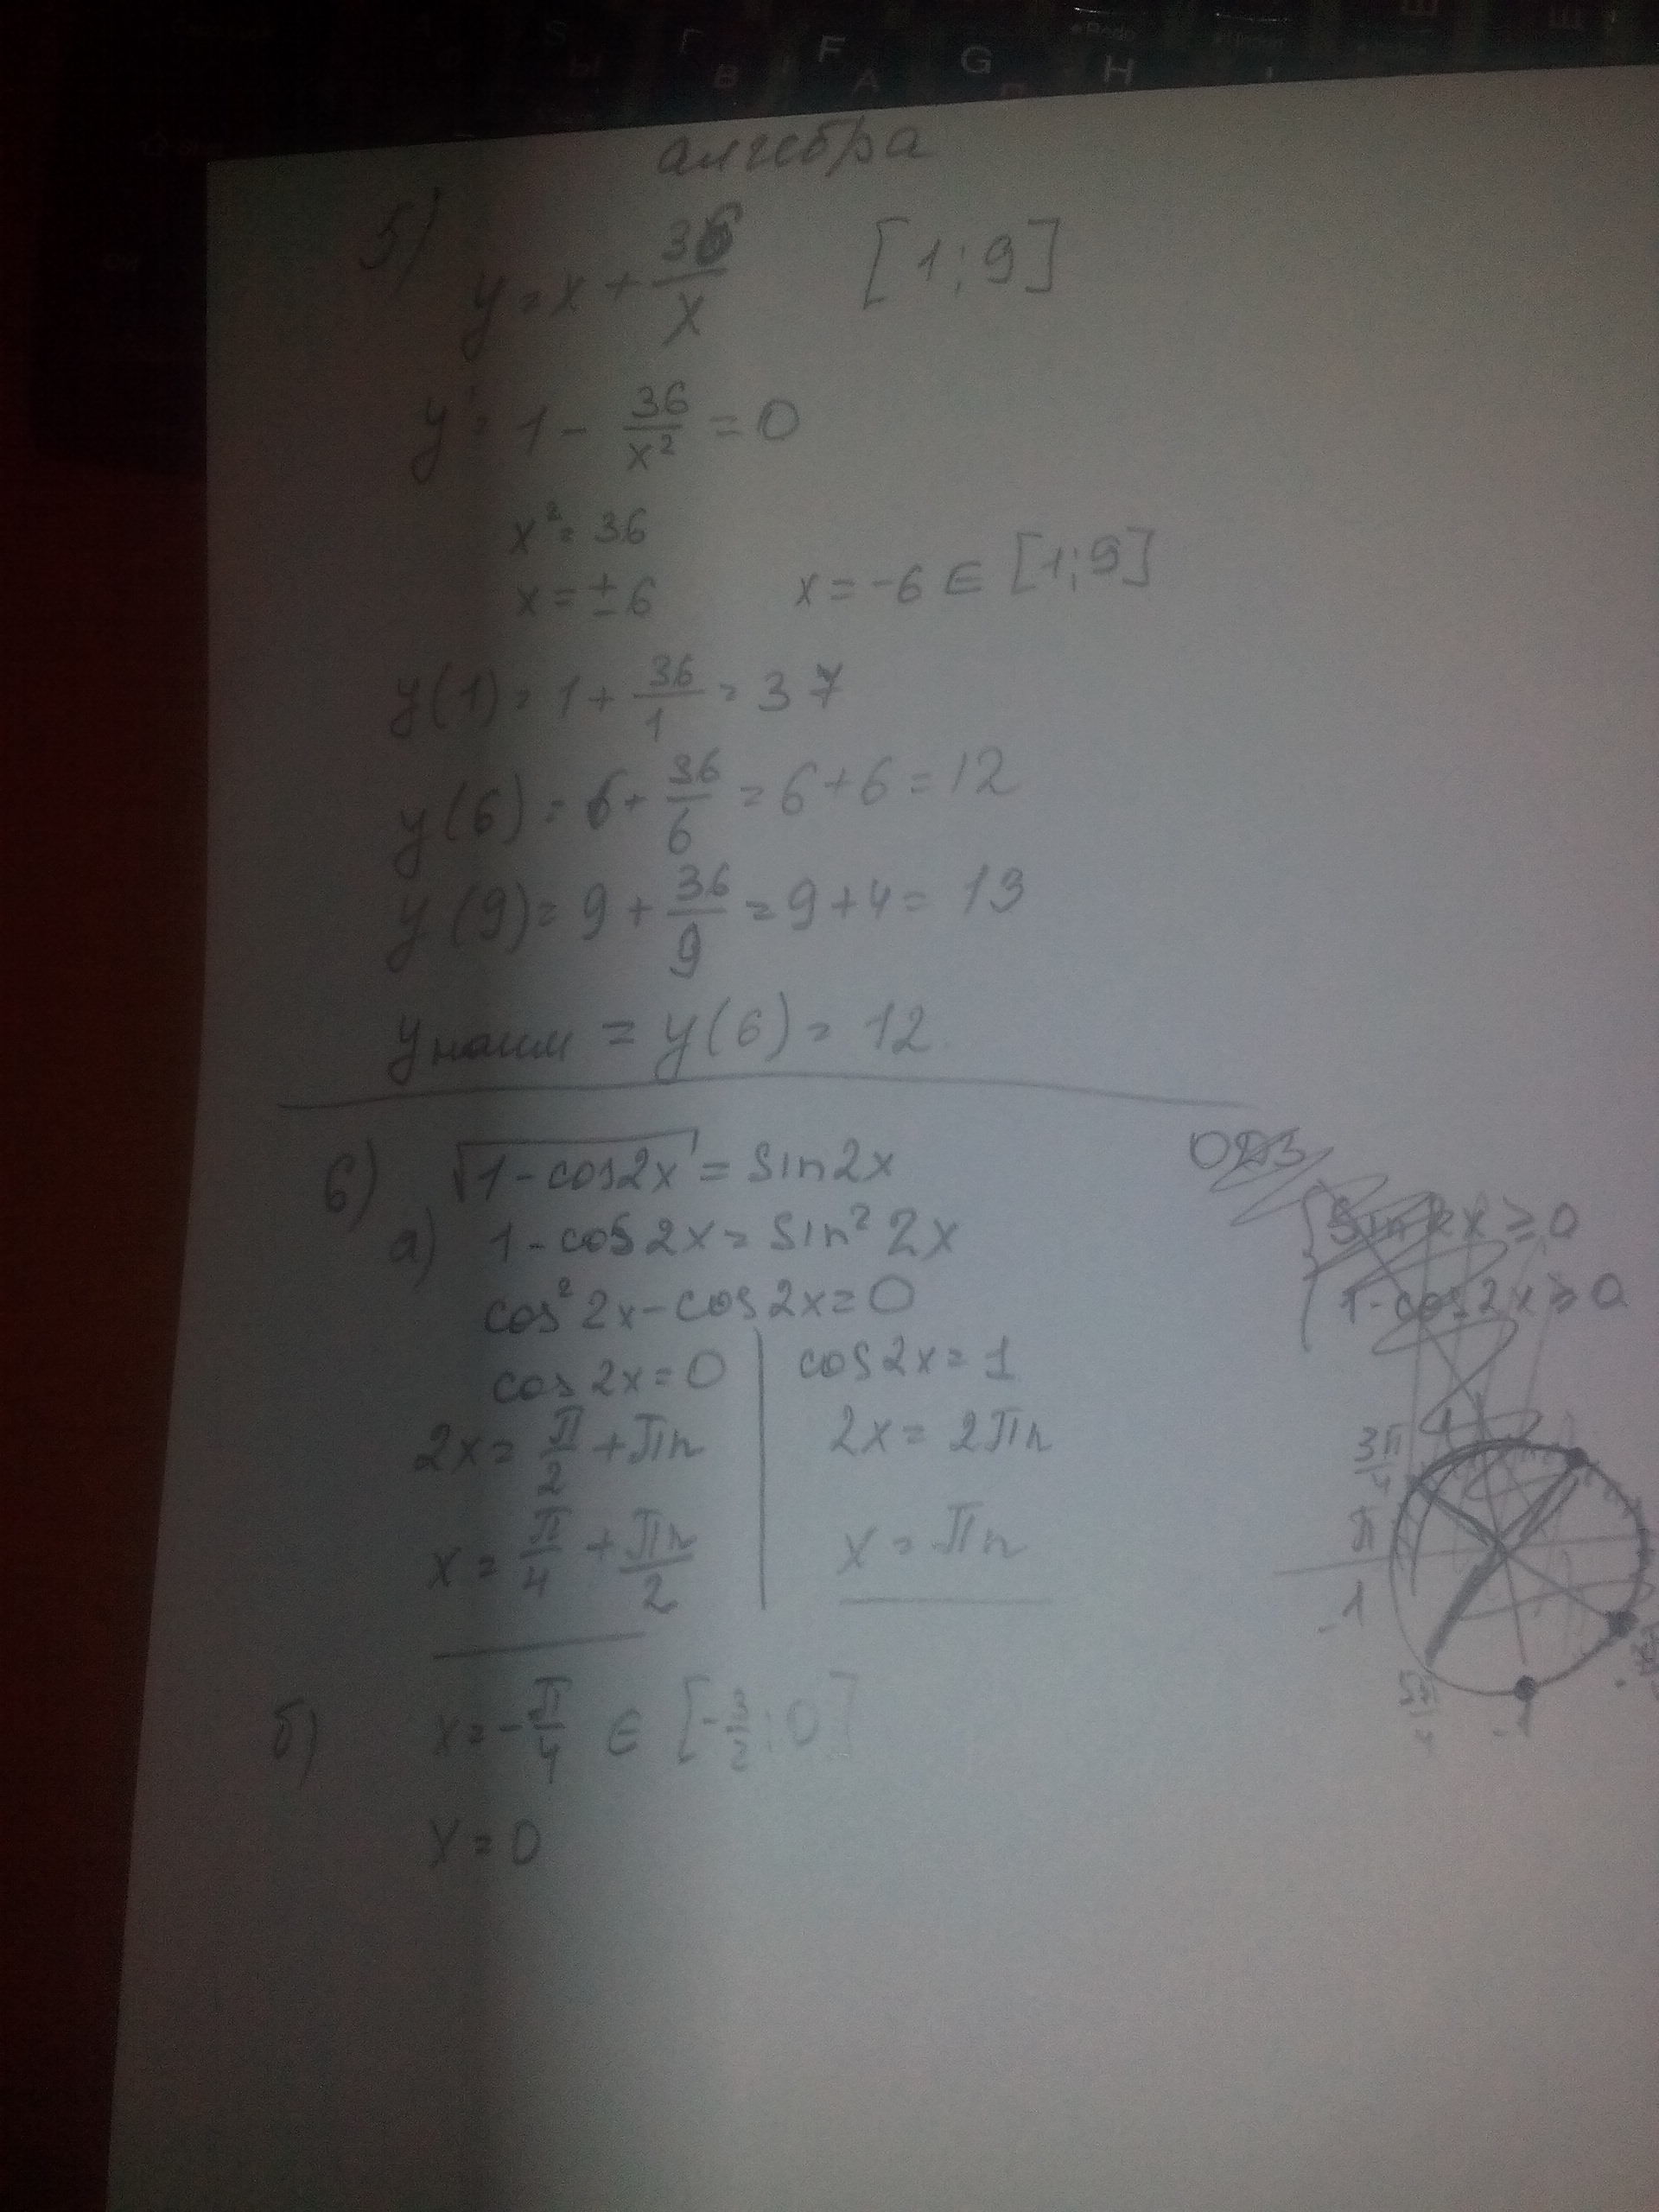 F G H
B A
алгебра
5)
y = x + 36/x [1; 9]
y' = 1 - 36/x² = 0
x² = 36
x = ±6 x = -6 ∈ [1; 9]
y(1) = 1 + 36/1 = 37
y(6) = 6 + 36/6 = 6 + 6 = 12
y(9) = 9 + 36/9 = 9 + 4 = 13
yнаим = y(6) = 12
6) √(1 - cos2x) = sin2x
а) 1 - cos2x = sin² 2x
cos² 2x - cos2x = 0
cos2x = 0 | cos2x = 1
2x = π/2 + πn | 2x = 2πn
x = π/4 + πn/2 | x = πn
б) x = -π/4 ∈ [-3/2; 0]
x = 0
ОДЗ
sin2x ≥ 0
1 - cos2x ≥ 0
3π/4
π
-1
5π/4
-1